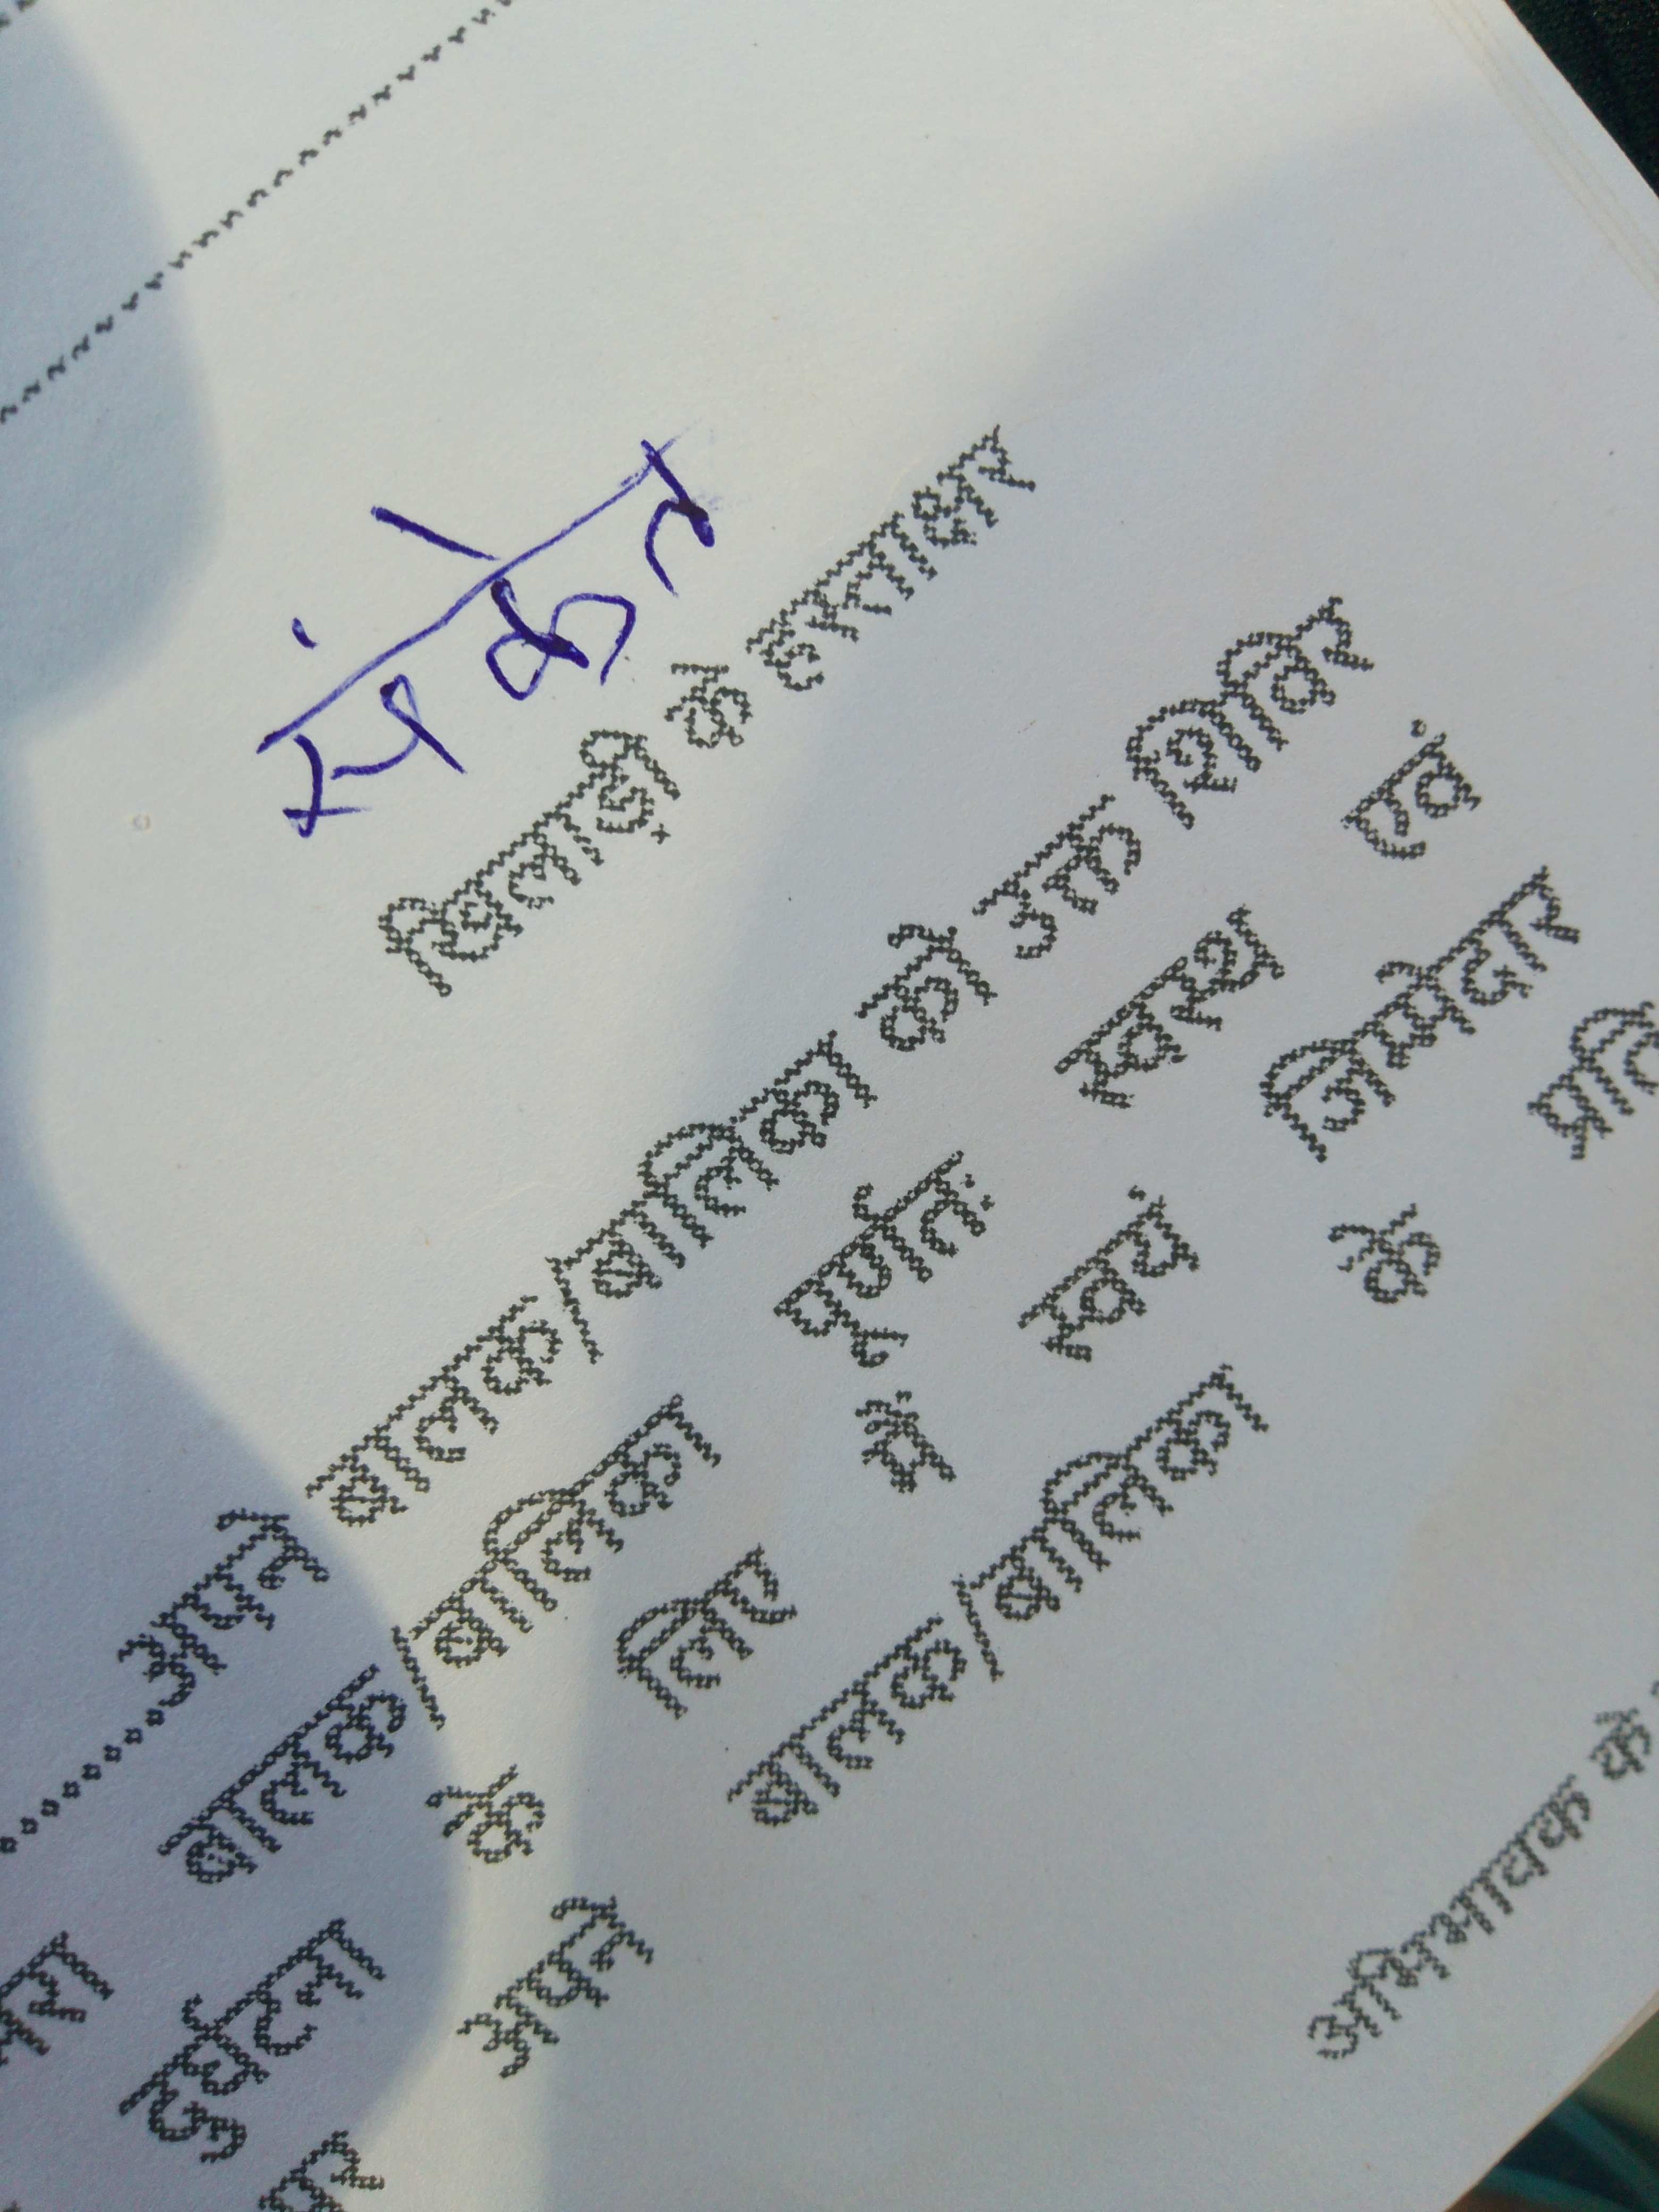 संकेत
खिलाड़ी के हस्ताक्षर
अपने बालक/बालिका को उक्त शिविर
बालक/बालिका पूर्णतः स्वस्थ एवं
दुर्घटना के लिए मैं स्वयं जिम्मेदार
अपने बालक/बालिका के
अभिभावक के